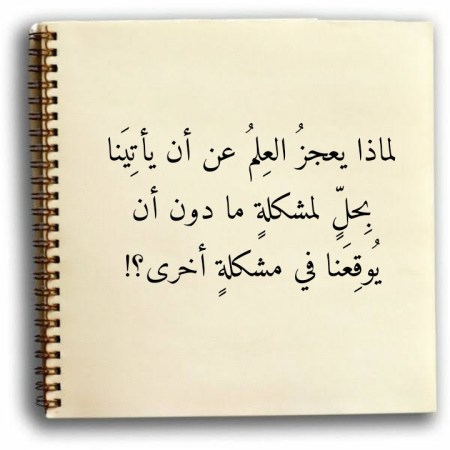 لماذا يعجزُ العِلمُ عن أن يأتِيَنا
بِحلٍّ لمشكلةٍ ما دون أن
يُوقِعَنا في مشكلةٍ أخرى؟!